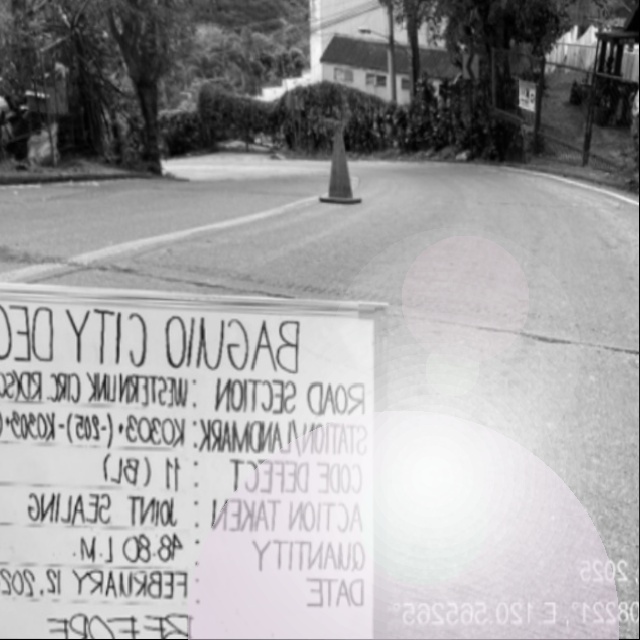 BAGUIO CITY DEO
ROAD SECTION : WESTERN LINK CIRC. RD(SO
STATION/LANDMARK: K0303+(-205)-K0303+(
CODE DEFECT : 11 (BL)
ACTION TAKEN : JOINT SEALING
QUANTITY : 48.80 L.M.
DATE : FEBRUARY 12, 202
BEFORE
2025
08221°, E 120.565265°